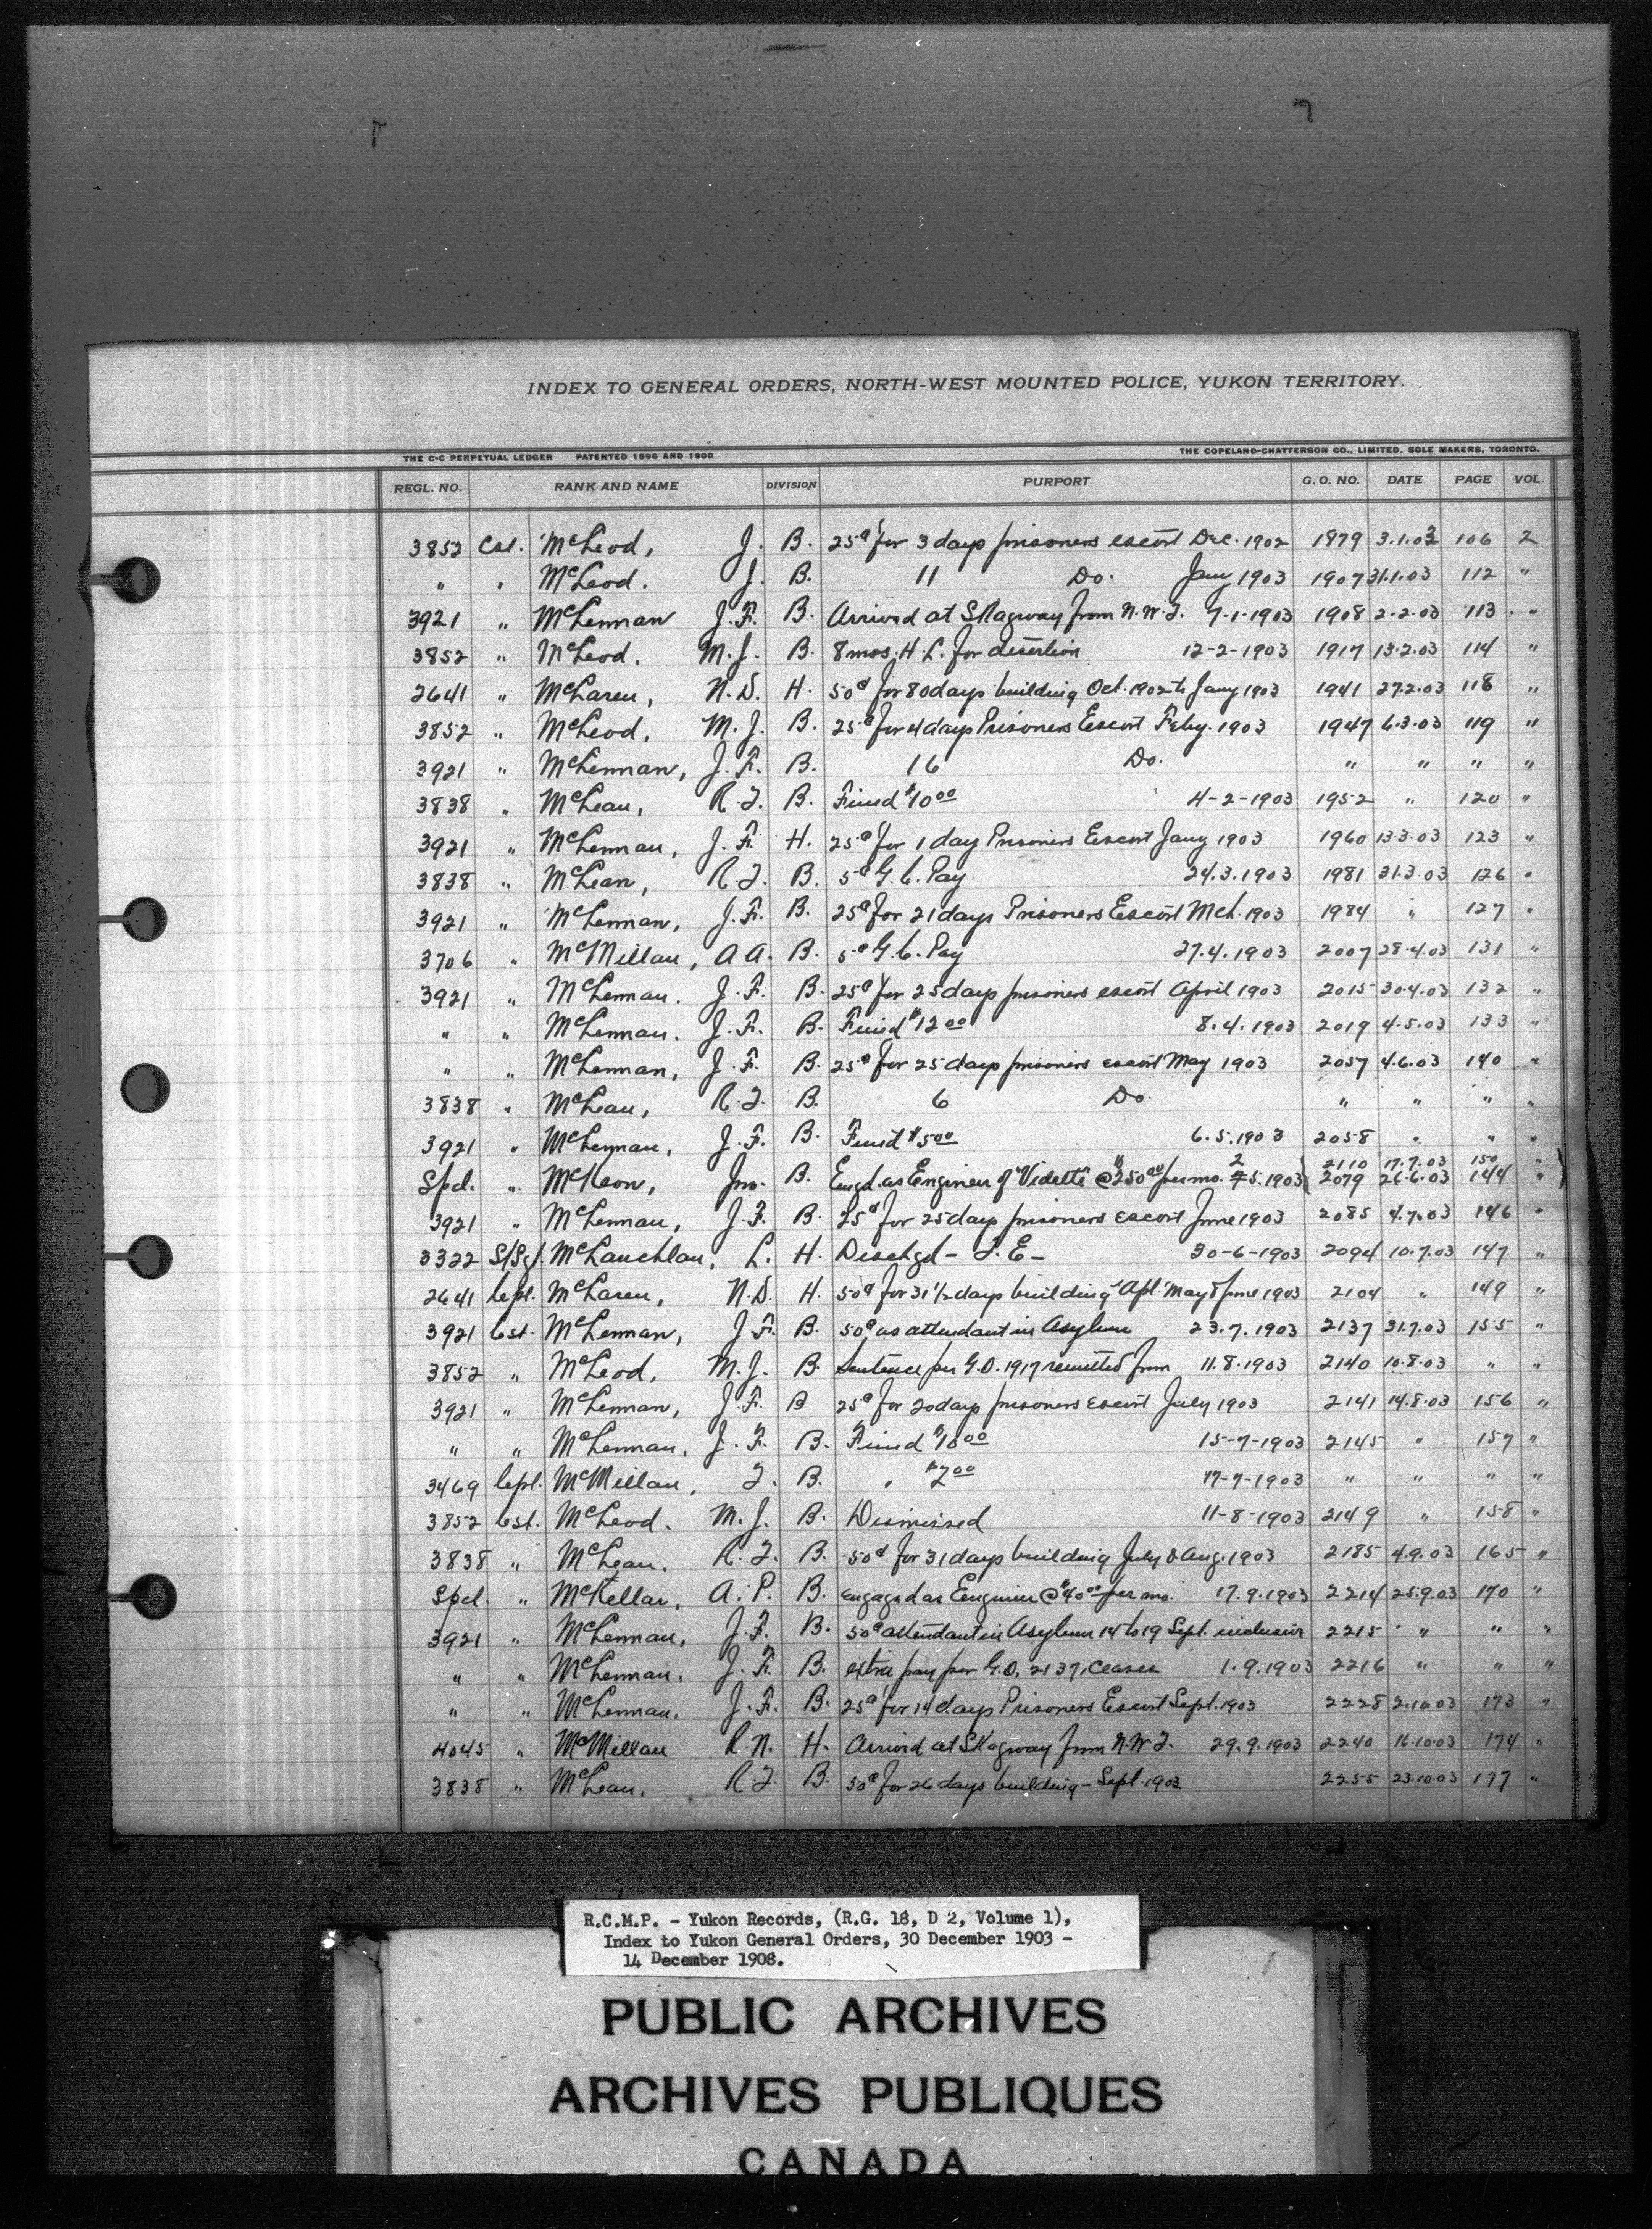 INDEX TO GENERAL ORDERS, NORTH-WEST MOUNTED POLICE, YUKON TERRITORY.
THE C-C PERPETUAL LEDGER PATENTED 1896 AND 1900 THE COPELAND-CHATTERSON CO., LIMITED, SOLE MAKERS, TORONTO.
REGL. NO. RANK AND NAME DIVISION PURPORT G. O. NO. DATE PAGE VOL.
3852 Cst. McLeod, J. B. 25¢ for 3 days prisoners escort Dec. 1902 1879 3.1.03 106 2
" " McLeod. J. B. 11 Do. Jany 1903 1907 31.1.03 112 "
3921 " McLennan J.F. B. Arrived at Skagway from N.W.T. 7-1-1903 1908 2.2.03 113 "
3852 " McLeod. M.J. B. 8 mos. H.L. for desertion 12-2-1903 1917 13.2.03 114 "
2641 " McLaren, N.D. H. 50¢ for 80 days building Oct. 1902 to Jany 1903 1941 27.2.03 118 "
3852 " McLeod, M.J. B. 25¢ for 4 days Prisoners Escort Feby. 1903 1947 6.3.03 119 "
3921 " McLennan, J.F. B. 16 Do. " " " "
3838 " McLean, R.T. B. Fined $10.00 4-2-1903 1952 " 120 "
3921 " McLennan, J.F. H. 25¢ for 1 day Prisoners Escort Jany 1903 1960 13.3.03 123 "
3838 " McLean, R.T. B. 5¢ G.C. Pay 24.3.1903 1981 31.3.03 126 "
3921 " McLennan, J.F. B. 25¢ for 21 days Prisoners Escort Mch. 1903 1984 " 127 "
3706 " McMillan, A A. B. 5¢ G.C. Pay 27.4.1903 2007 28.4.03 131 "
3921 " McLennan. J.F. B. 25¢ for 25 days prisoners escort April 1903 2015 30.4.03 132 "
" " McLennan. J.F. B. Fined $12.00 8.4.1903 2019 4.5.03 133 "
" " McLennan, J.F. B. 25¢ for 25 days prisoners escort May 1903 2057 4.6.03 140 "
3838 " McLean, R.T. B. 6 Do. " " " "
3921 " McLennan, J.F. B. Fined $5.00 6.5.1903 2058 " " "
2 2110 17.7.03 150 "
Spcl. " McKeon, Jno. B. Engd. as Engineer of "Vidette" @ $250.00 per mo. 7.5.1903 2079 26.6.03 144 "
3921 " McLennan, J.F. B. 25¢ for 25 days prisoners escort June 1903 2085 4.7.03 146 "
3322 S/Sgt. McLauchlan, L. H. Dischgd - T.E - 30-6-1903 2094 10.7.03 147 "
2641 Cpl. McLaren, N.D. H. 50¢ for 31 1/2 days building Apl. May & June 1903 2104 " 149 "
3921 Cst. McLennan, J.F. B. 50¢ as attendant in Asylum 23.7.1903 2137 31.7.03 155 "
3852 " McLeod, M.J. B. Sentence per G.O. 1917 remitted from 11.8.1903 2140 10.8.03 " "
3921 " McLennan, J.F. B 25¢ for 20 days prisoners escort July 1903 2141 14.8.03 156 "
" " McLennan, J.F. B. Fined $10.00 15-7-1903 2145 " 157 "
3469 Cpl. McMillan, T. B. " $2.00 17-7-1903 " " " "
3852 Cst. McLeod. M.J. B. Dismissed 11-8-1903 2149 " 158 "
3838 " McLean. R.T. B. 50¢ for 31 days building July & Aug. 1903 2185 4.9.03 165 "
Spcl. " McKellar, A.P. B. engaged as Engineer @ $40.00 per mo. 17.9.1903 2214 25.9.03 170 "
3921 " McLennan, J.F. B. 50¢ attendant in Asylum 14 to 19 Sept. inclusive 2215 " " "
" " McLennan. J.F. B. extra pay per G.O. 2137, Ceases 1.9.1903 2216 " " "
" " McLennan. J.F. B. 25¢ for 14 days Prisoners Escort Sept. 1903 2228 2.10.03 173 "
4045 " McMillan R.N. H. Arrived at Skagway from N.W.T. 29.9.1903 2240 16.10.03 174 "
3838 " McLean. R.T. B. 50¢ for 26 days building - Sept. 1903 2255 23.10.03 177 "
R.C.M.P. - Yukon Records, (R.G. 18, D 2, Volume 1),
Index to Yukon General Orders, 30 December 1903 -
14 December 1908.
PUBLIC ARCHIVES
ARCHIVES PUBLIQUES
CANADA